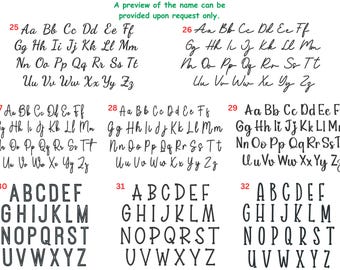 A preview of the name can be
provided upon request only.
25
Aa Bb Cc Dd Ee Ff
Gg Hh Ii Jj Kk Ll Mm
Nn Oo Pp Qq Rr Ss Tt
Uu Vv Ww Xx Yy Zz
26
Aa Bb Cc Dd Ee Ff
Gg Hh Ii Jj Kk Ll Mm
Nn Oo Pp Qq Rr Ss Tt
Uu Vv Ww Xx Yy Zz
Aa Bb Cc Dd Ee Ff
Gg Hh Ii Jj Kk Ll Mm
Nn Oo Pp Qq Rr Ss Tt
Uu Vv Ww Xx Yy Zz
28
Aa Bb Cc Dd Ee Ff
Gg Hh Ii Jj Kk Ll Mm
Nn Oo Pp Qq Rr Ss Tt
Uu Vv Ww Xx Yy Zz
29
Aa Bb Cc Dd Ee Ff
Gg Hh Ii Jj Kk Ll Mm
Nn Oo Pp Qq Rr Ss Tt
Uu Vv Ww Xx Yy Zz
30
ABCDEF
GHIJKLM
NOPQRST
UVWXYZ
31
ABCDEF
GHIJKLM
NOPQRST
UVWXYZ
32
ABCDEF
GHIJKLM
NOPQRST
UVWXYZ